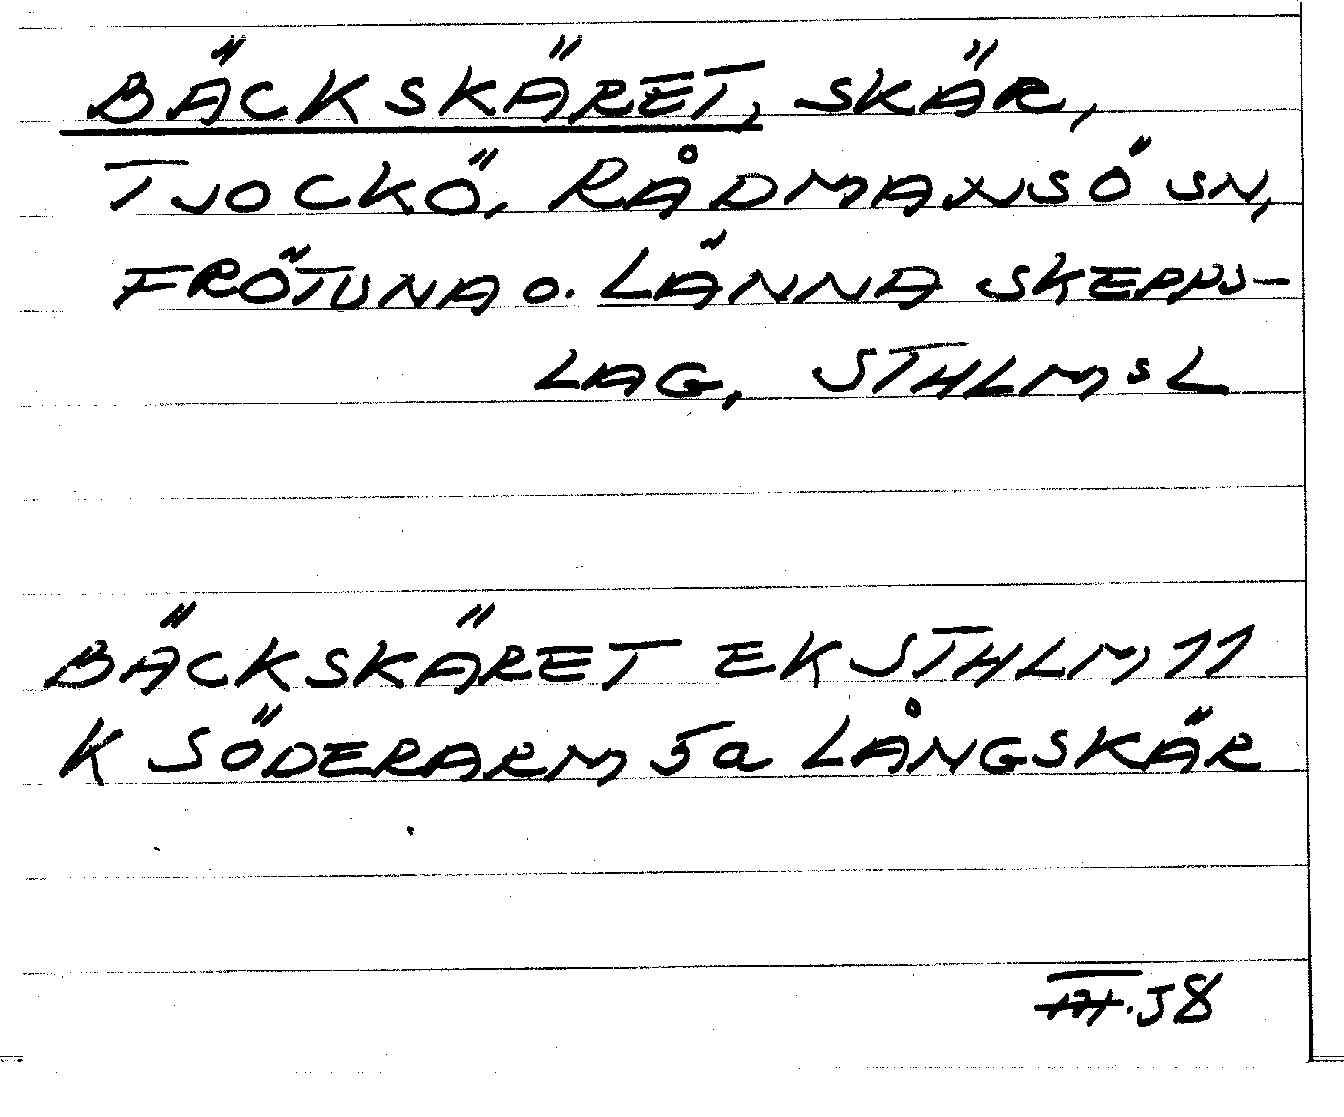 BÄCKSKÄRET, SKÄR,
TJOCKÖ, RÅDMANSÖ SN,
FRÖTUNA o. LÄNNA SKEPPS-
LAG, STHLMSL
BÄCKSKÄRET EK STHLM 11
K SÖDERARM 5a LÅNGSKÄR